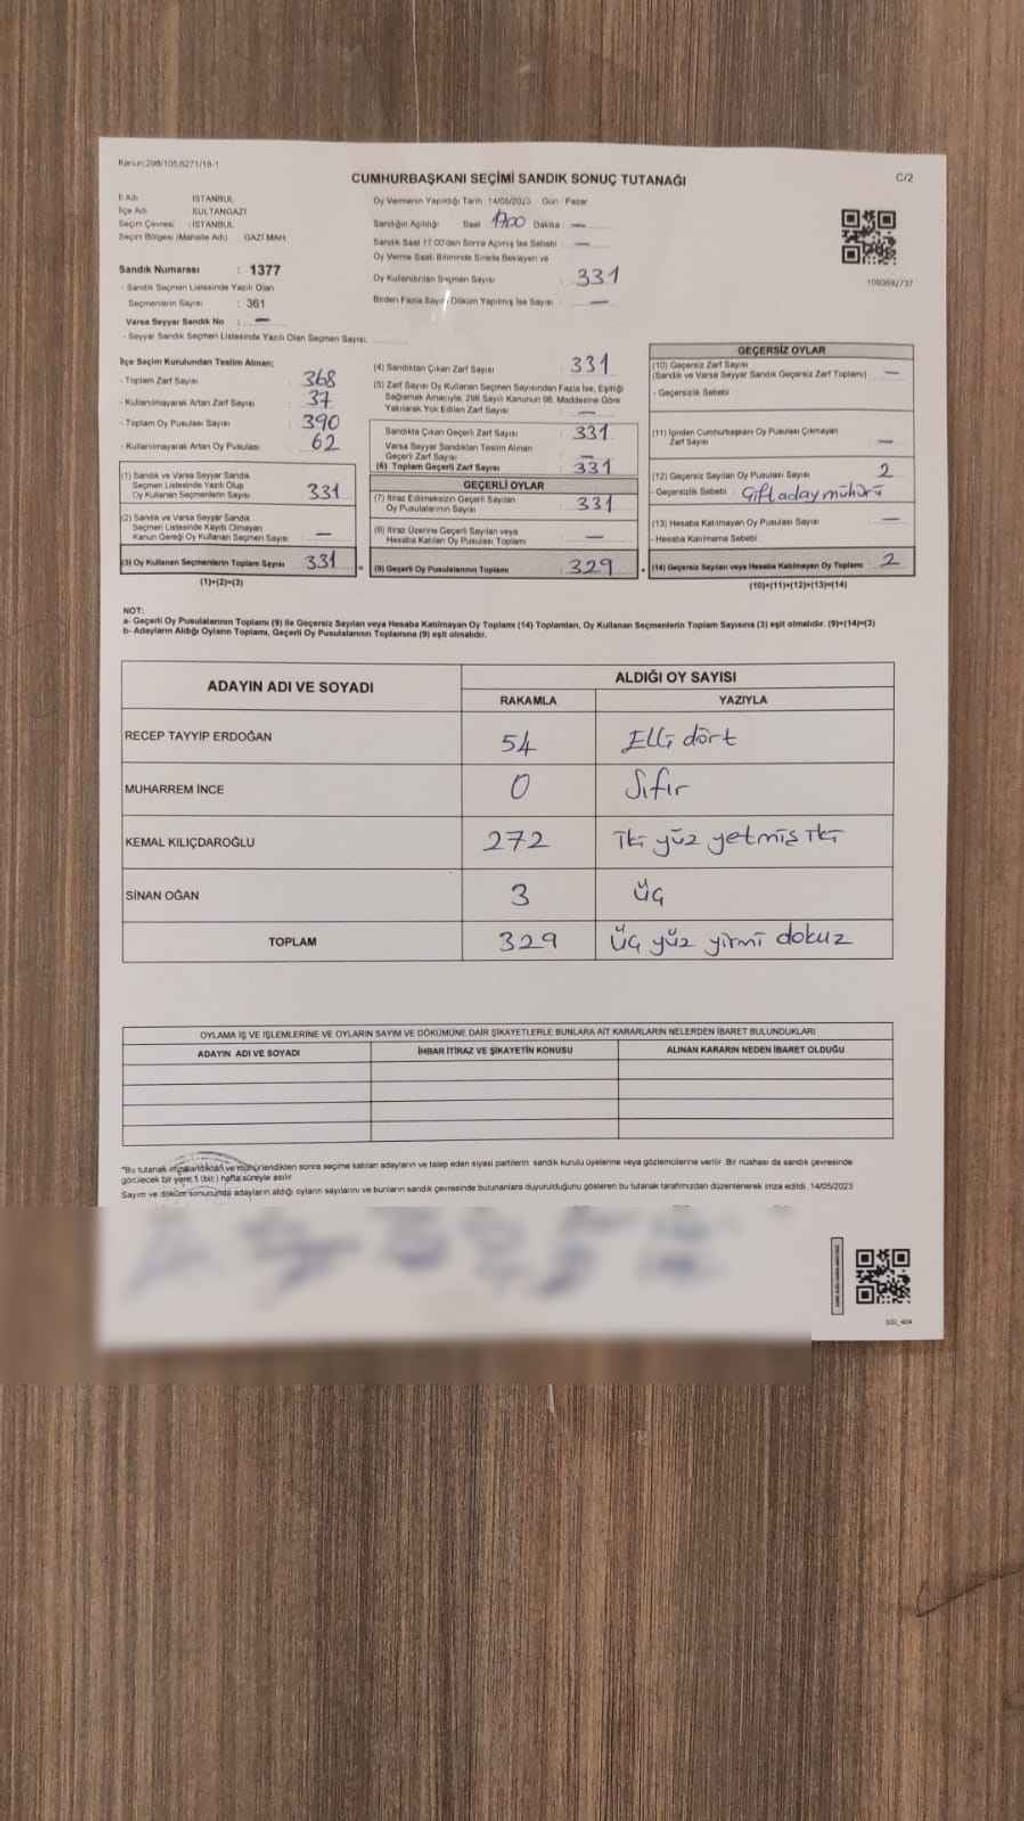 Kanun:298/105,6271/18-1
CUMHURBAŞKANI SEÇİMİ SANDIK SONUÇ TUTANAĞI
C/2
İl Adı : İSTANBUL
İlçe Adı : SULTANGAZİ
Seçim Çevresi : İSTANBUL
Seçim Bölgesi (Mahalle Adı) : GAZİ MAH.
Sandık Numarası : 1377
- Sandık Seçmen Listesinde Yazılı Olan
Seçmenlerin Sayısı : 361
Varsa Seyyar Sandık No : —
- Seyyar Sandık Seçmen Listesinde Yazılı Olan Seçmen Sayısı:
Oy Vermenin Yapıldığı Tarih :14/05/2023 Gün : Pazar
Sandığın Açıldığı Saat 1700 Dakika : —
Sandık Saat 17:00'den Sonra Açılmış İse Sebebi : —
Oy Verme Saati Bitiminde Sırada Bekleyen ve
Oy Kullandırılan Seçmen Sayısı : 331
Birden Fazla Sayım Döküm Yapılmış İse Sayısı : —
İlçe Seçim Kurulundan Teslim Alınan;
- Toplam Zarf Sayısı : 368
- Kullanılmayarak Artan Zarf Sayısı : 37
- Toplam Oy Pusulası Sayısı : 390
- Kullanılmayarak Artan Oy Pusulası : 62
(1) Sandık ve Varsa Seyyar Sandık
Seçmen Listesinde Yazılı Olup
Oy Kullanan Seçmenlerin Sayısı : 331
(2) Sandık ve Varsa Seyyar Sandık
Seçmen Listesinde Kayıtlı Olmayan
Kanun Gereği Oy Kullanan Seçmen Sayısı : —
(3) Oy Kullanan Seçmenlerin Toplam Sayısı : 331
(1)+(2)=(3)
(4) Sandıktan Çıkan Zarf Sayısı : 331
(5) Zarf Sayısı Oy Kullanan Seçmen Sayısından Fazla İse, Eşitliği
Sağlamak Amacıyla, 298 Sayılı Kanunun 98. Maddesine Göre
Yakılarak Yok Edilen Zarf Sayısı : —
Sandıkta Çıkan Geçerli Zarf Sayısı : 331
Varsa Seyyar Sandıktan Teslim Alınan
Geçerli Zarf Sayısı : —
(6) Toplam Geçerli Zarf Sayısı : 331
GEÇERLİ OYLAR
(7) İtiraz Edilmeksizin Geçerli Sayılan
Oy Pusulalarının Sayısı : 331
(8) İtiraz Üzerine Geçerli Sayılan veya
Hesaba Katılan Oy Pusulası Toplamı : —
(9) Geçerli Oy Pusulalarının Toplamı : 329
GEÇERSİZ OYLAR
(10) Geçersiz Zarf Sayısı
(Sandık ve Varsa Seyyar Sandık Geçersiz Zarf Toplamı) : —
- Geçersizlik Sebebi
(11) İçinden Cumhurbaşkanı Oy Pusulası Çıkmayan
Zarf Sayısı : —
(12) Geçersiz Sayılan Oy Pusulası Sayısı : 2
- Geçersizlik Sebebi : Çift aday mühürü
(13) Hesaba Katılmayan Oy Pusulası Sayısı : —
- Hesaba Katılmama Sebebi
(14) Geçersiz Sayılan veya Hesaba Katılmayan Oy Toplamı : 2
(10)+(11)+(12)+(13)=(14)
NOT:
a- Geçerli Oy Pusulalarının Toplamı (9) ile Geçersiz Sayılan veya Hesaba Katılmayan Oy Toplamı (14) Toplamları, Oy Kullanan Seçmenlerin Toplam Sayısına (3) eşit olmalıdır. (9)+(14)=(3)
b- Adayların Aldığı Oyların Toplamı, Geçerli Oy Pusulalarının Toplamına (9) eşit olmalıdır.
ADAYIN ADI VE SOYADI
ALDIĞI OY SAYISI
RAKAMLA YAZIYLA
RECEP TAYYİP ERDOĞAN 54 Elli dört
MUHARREM İNCE 0 Sıfır
KEMAL KILIÇDAROĞLU 272 iki yüz yetmiş iki
SİNAN OĞAN 3 üç
TOPLAM 329 üç yüz yirmi dokuz
OYLAMA İŞ VE İŞLEMLERİNE VE OYLARIN SAYIM VE DÖKÜMÜNE DAİR ŞİKAYETLERLE BUNLARA AİT KARARLARIN NELERDEN İBARET BULUNDUKLARI
ADAYIN ADI VE SOYADI İHBAR İTİRAZ VE ŞİKAYETİN KONUSU ALINAN KARARIN NEDEN İBARET OLDUĞU
*Bu tutanak imzalandıktan ve mühürlendikten sonra seçime katılan adayların ve talep eden siyasi partilerin sandık kurulu üyelerine veya gözlemcilerine verilir. Bir nüshası da sandık çevresinde
görülecek bir yere 1 (bir) hafta süreyle asılır.
Sayım ve döküm sonucunda adayların aldığı oyların sayılarını ve bunların sandık çevresinde bulunanlara duyurulduğunu gösteren bu tutanak tarafımızdan düzenlenerek imza edildi. 14/05/2023